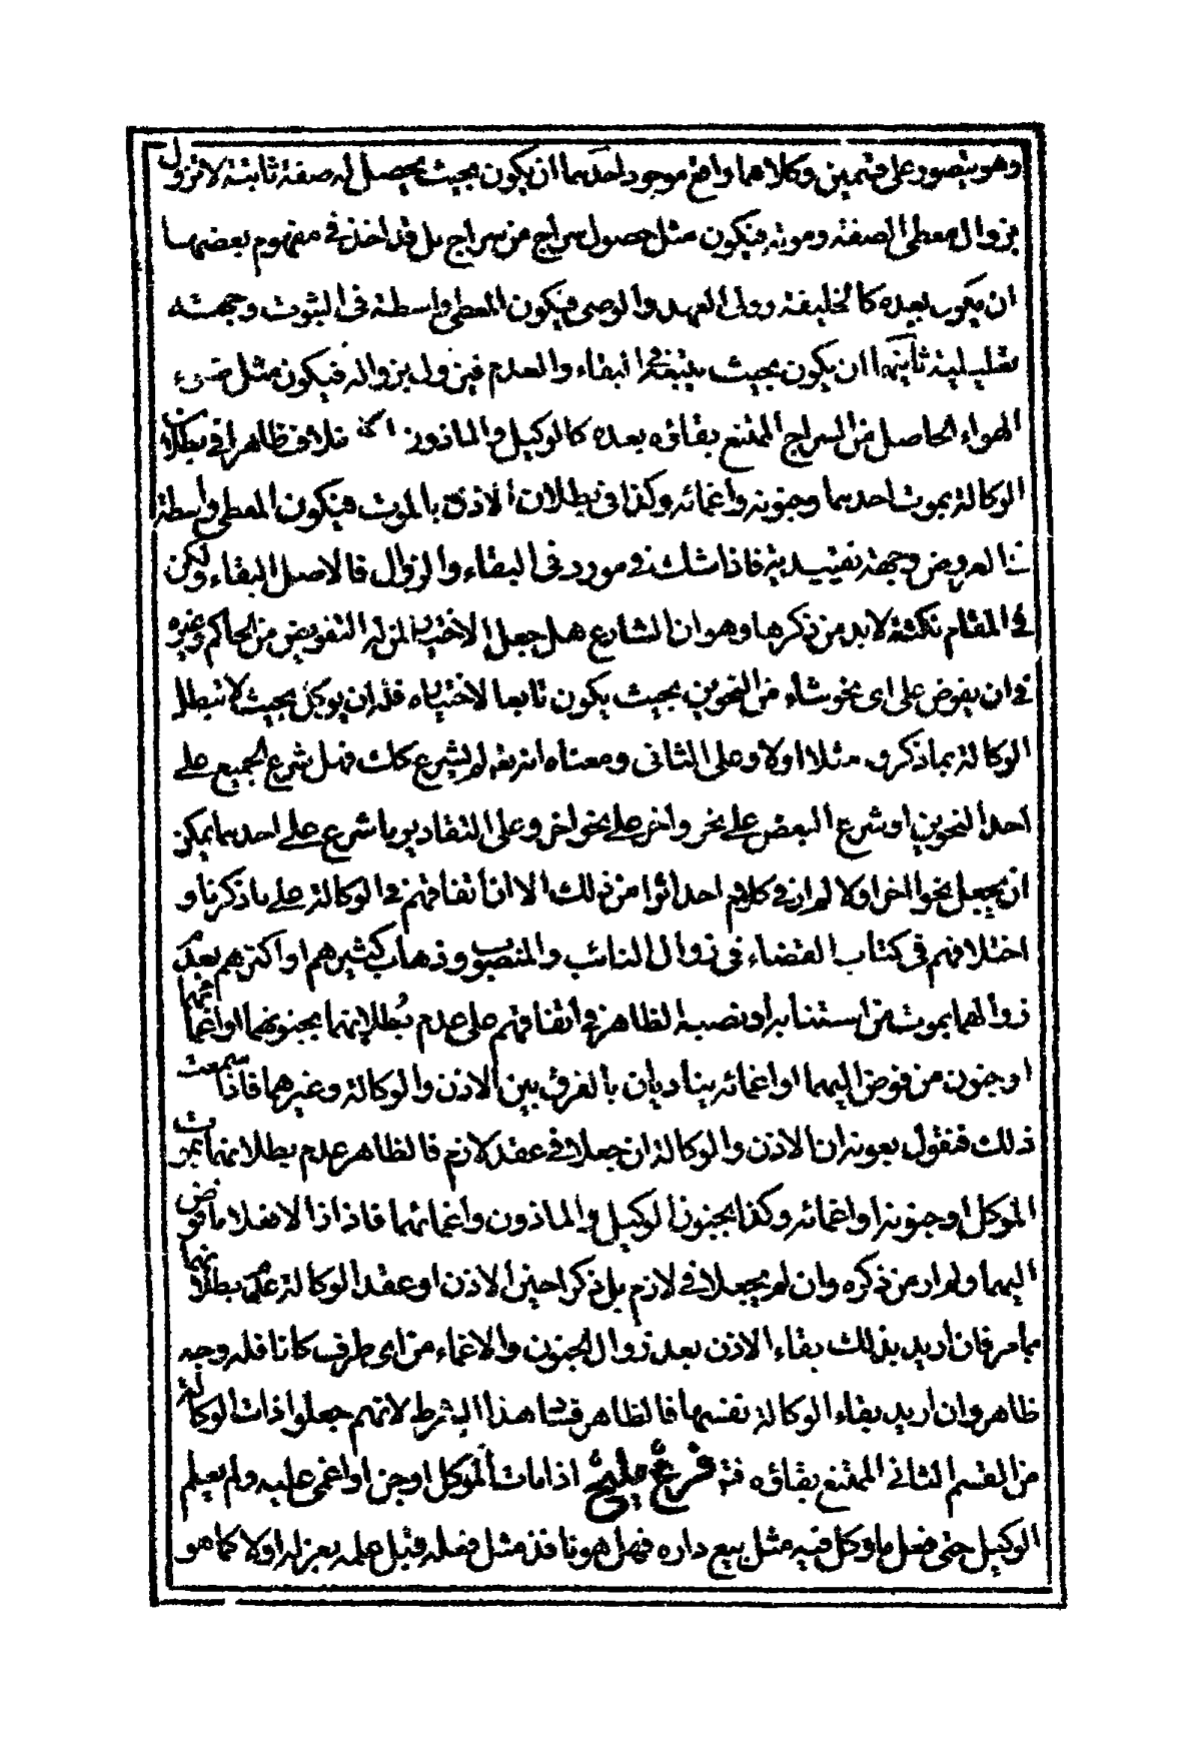 وهو يتصور على قسمين وكلاهما واقع موجود احدهما ان يكون بحيث يحصل له صفة ثابتة لا تزول
بزوال معطى الصفة وموته فيكون مثل حصول سراج من سراج بل قد اخذ في مفهوم بعضها
ان يكون بعده كالخليفة وولى العهد والوصى فيكون المعطى واسطة فى الثبوت وجهته
تعليلية ثانيهما ان يكون بحيث يتبعه فى البقاء والعدم فيزول بزواله فيكون مثل ضوء
الهواء الحاصل من السراج الممتنع بقاؤه بعده كالوكيل والماذون فلا خلاف ظاهرا في بطلان
الوكالة بموت احدهما وجنونه واغمائه وكذا فى بطلان الاذن بالموت فيكون المعطى واسطة
فى العروض وجهته تقييدية فاذا شك فى مورد فى البقاء والزوال فالاصل البقاء ولكن
فى المقام نكتة لابد من ذكرها وهو ان الشارع هل جعل الاختيار لمن له التفويض من الحاكم وغيره
فى ان يفوض على اى نحو شاء من النحوين بحيث يكون تابعا لاختياره فله ان يوكل بحيث لا تبطل
الوكالة بما ذكر مثلا اولا وعلى الثانى ومعناه انه لم يشرع كك فهل شرع الجميع على
احد النحوين او شرع البعض على نحو واخر على نحو اخر وعلى التقادير ما شرع على احدهما يمكن
ان يجعل نحو اخر اولا لم ار فى كلامهم احد اثرا من ذلك الا ان اتفاقهم فى الوكالة على ما ذكرنا و
اختلافهم فى كتاب القضاء فى زوال النائب والمنصوب وذهاب كثيرهم او اكثرهم بعدم
زوالهما بموت من استنابه او نصبه الظاهر فى اتفاقهم على عدم بطلانهما بجنونهما او اغمائهما
او جنون من فوض اليهما او اغمائه يناديان بالفرق بين الاذن والوكالة وغيرهما فاذا سمعت
ذلك فنقول بعونه ان الاذن والوكالة ان جعلا فى عقد لازم فالظاهر عدم بطلانهما بموت
الموكل او جنونه او اغمائه وكذا بجنون الوكيل والماذون واغمائهما فاذ اذا لا فعلا ما فوض
اليهما ولم ار من ذكره وان لم يجعلا فى لازم بل ذكرا حين الاذن او عقد الوكالة عدم بطلانهما
بما مر فان اريد بذلك بقاء الاذن بعد زوال الجنون والاغماء من اى طرف كانا فله وجه
ظاهر وان اريد بقاء الوكالة نفسها فالظاهر فساد هذا الشرط لانهم جعلوا ذات الوكالة
من القسم الثانى الممتنع بقاؤه فتم فرع مليح اذا مات الموكل او جن او اغمى عليه ولم يعلم
الوكيل حتى فعل ما وكل فيه مثل بيع داره فهل هو نافذ مثل فعله قبل علمه بعزله اولا كما هو